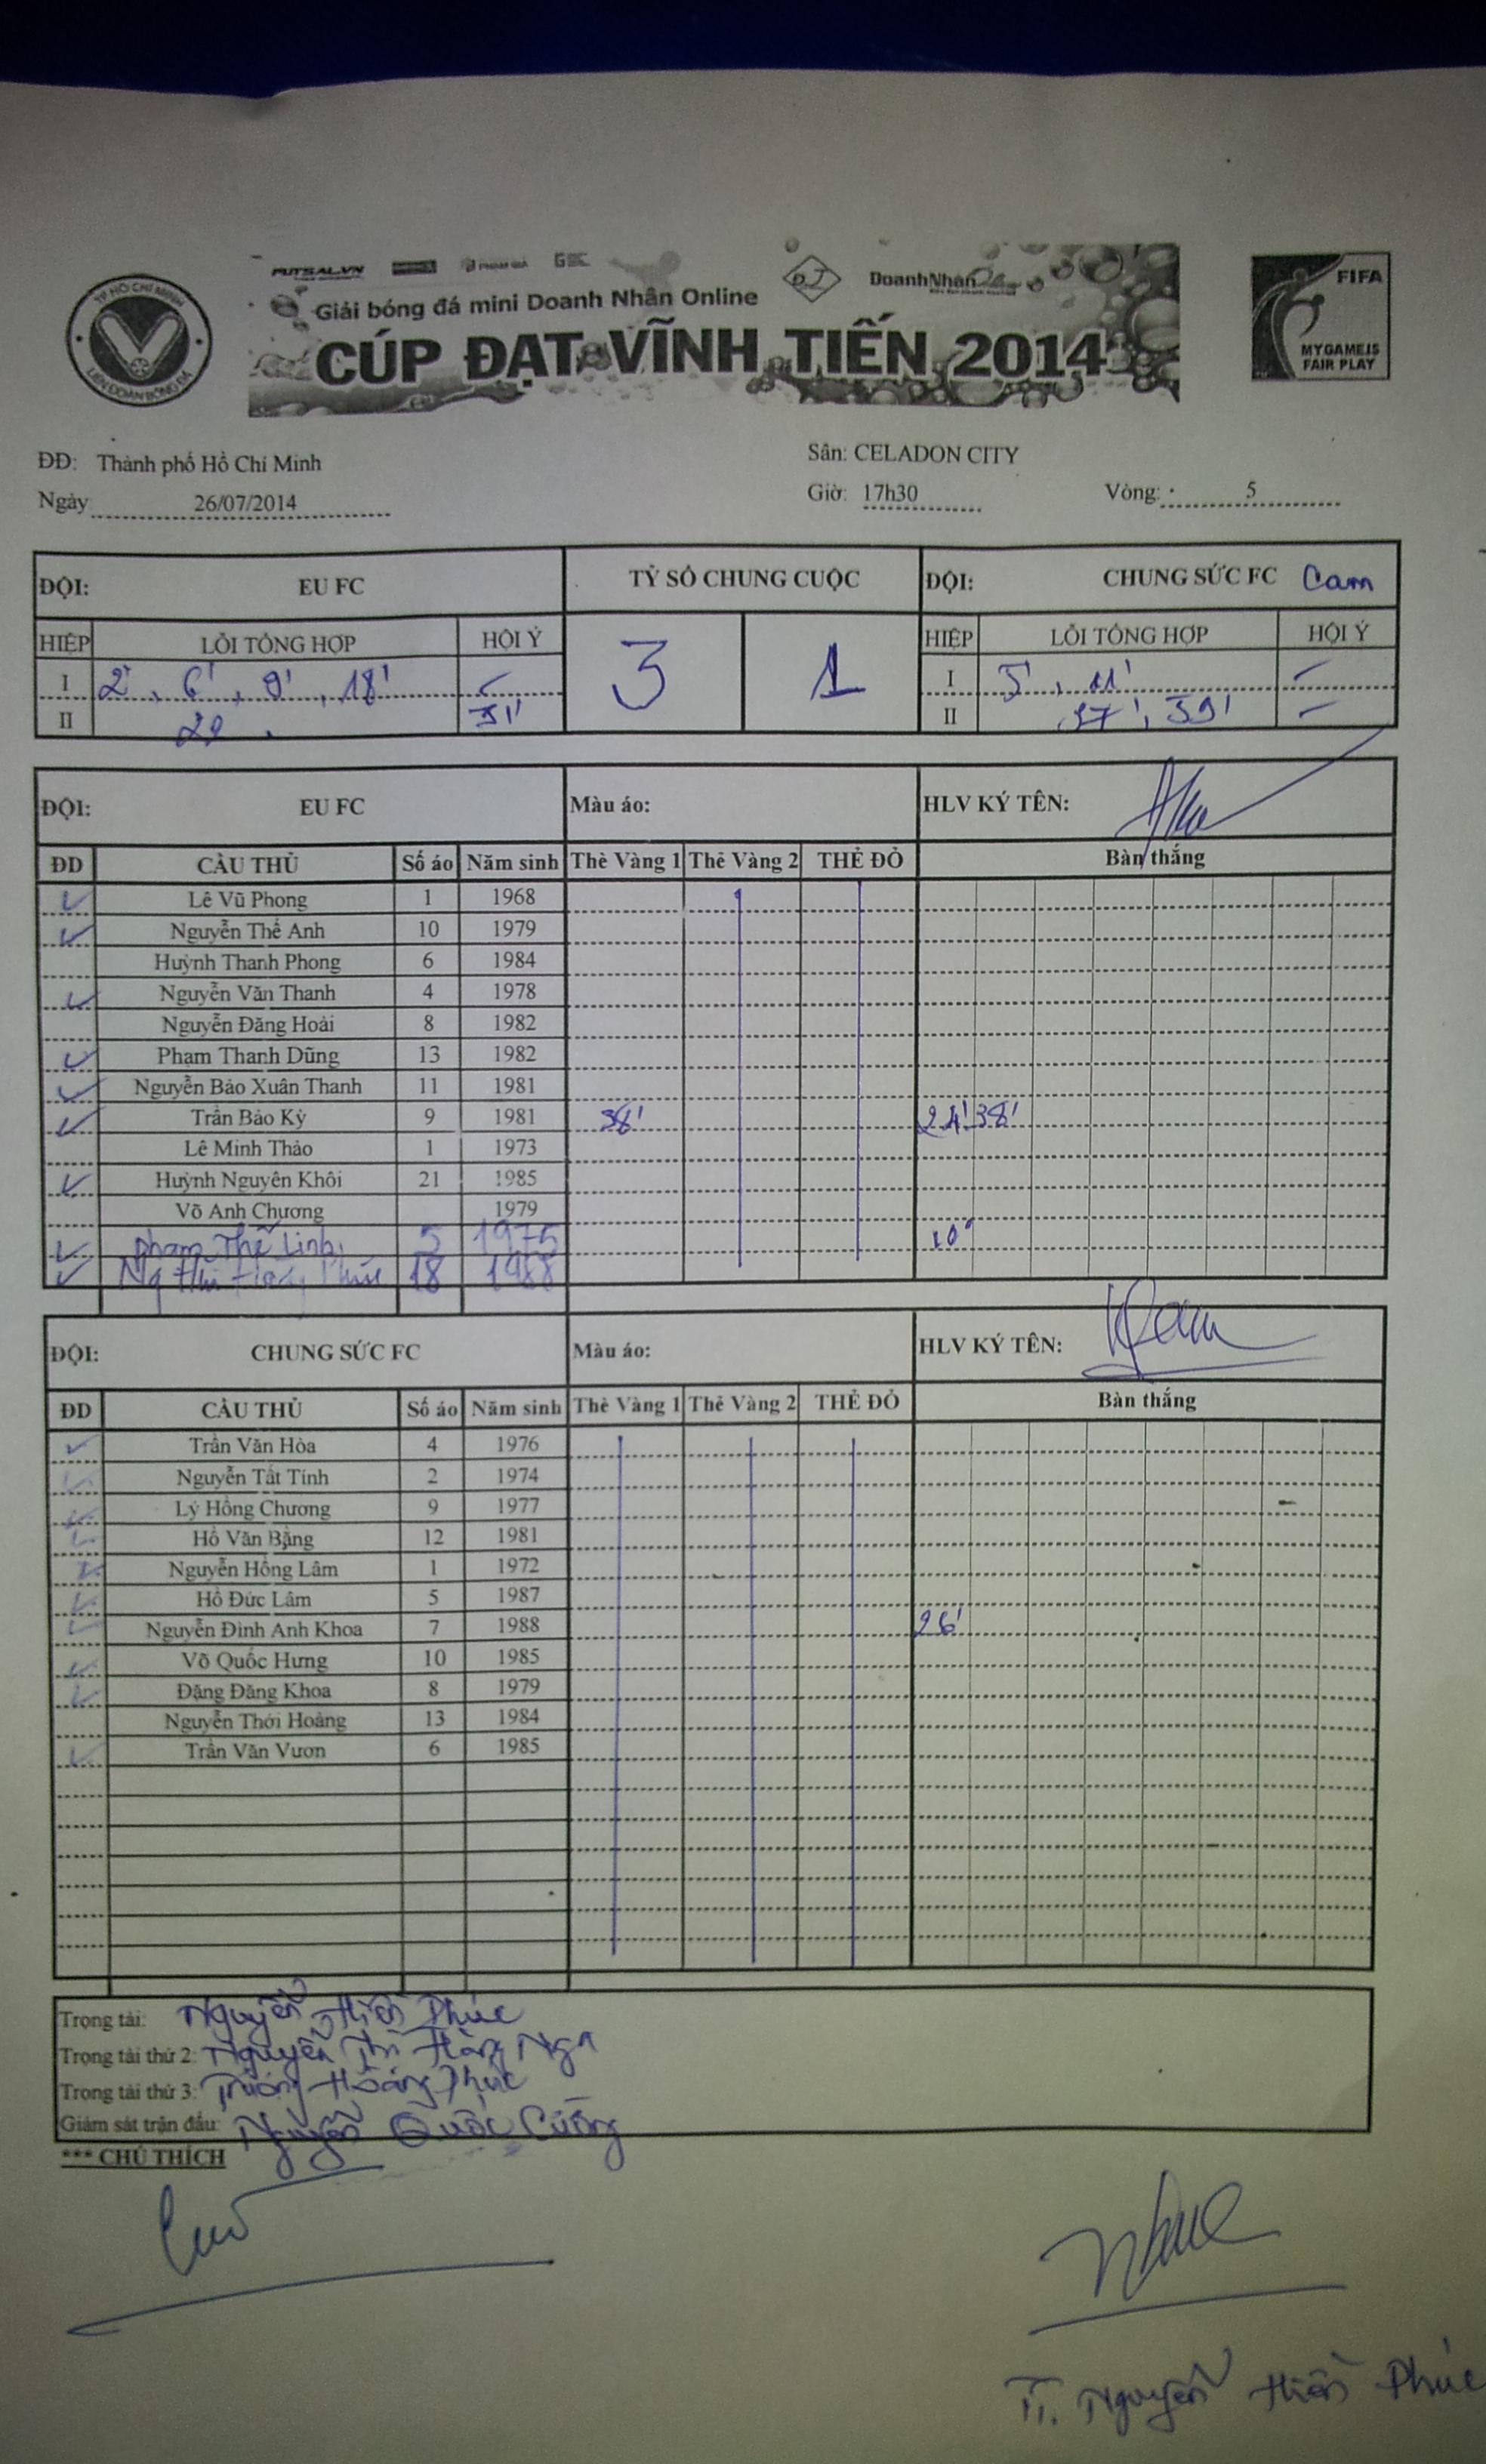 TP HỒ CHÍ MINH
LIÊN ĐOÀN BÓNG ĐÁ
FUTSAL.VN
ĐJ DoanhNhân
Giải bóng đá mini Doanh Nhân Online
CÚP ĐẠT VĨNH TIẾN 2014
FIFA
MY GAME IS
FAIR PLAY
ĐĐ: Thành phố Hồ Chí Minh Sân: CELADON CITY
Ngày 26/07/2014 Giờ: 17h30 Vòng: 5
ĐỘI: EU FC TỶ SỐ CHUNG CUỘC ĐỘI: CHUNG SỨC FC Cam
HIỆP LỖI TỔNG HỢP HỘI Ý 3 1 HIỆP LỖI TỔNG HỢP HỘI Ý
I 2', 6', 9', 18' - I 5', 11' -
II 29 31' II 37', 39' -
ĐỘI: EU FC Màu áo: HLV KÝ TÊN:
ĐD CẦU THỦ Số áo Năm sinh Thẻ Vàng 1 Thẻ Vàng 2 THẺ ĐỎ Bàn thắng
Lê Vũ Phong 1 1968
Nguyễn Thế Anh 10 1979
Huỳnh Thanh Phong 6 1984
Nguyễn Văn Thanh 4 1978
Nguyễn Đăng Hoài 8 1982
Phạm Thanh Dũng 13 1982
Nguyễn Bảo Xuân Thanh 11 1981
Trần Bảo Kỳ 9 1981 38' 24' 38'
Lê Minh Thảo 1 1973
Huỳnh Nguyên Khôi 21 1985
Võ Anh Chương 1979
Phạm Thế Linh 5 1975 10'
18 1988
ĐỘI: CHUNG SỨC FC Màu áo: HLV KÝ TÊN:
ĐD CẦU THỦ Số áo Năm sinh Thẻ Vàng 1 Thẻ Vàng 2 THẺ ĐỎ Bàn thắng
Trần Văn Hòa 4 1976
Nguyễn Tất Tính 2 1974
Lý Hồng Chương 9 1977
Hồ Văn Bằng 12 1981
Nguyễn Hồng Lâm 1 1972
Hồ Đức Lâm 5 1987
Nguyễn Đình Anh Khoa 7 1988 26'
Võ Quốc Hưng 10 1985
Đặng Đăng Khoa 8 1979
Nguyễn Thới Hoàng 13 1984
Trần Văn Vươn 6 1985
Trọng tài: Nguyễn Hiền Phúc
Trọng tài thứ 2: Nguyễn Thị Hằng Nga
Trọng tài thứ 3: Trương Hoàng Phúc
Giám sát trận đấu: Nguyễn Quốc Cường
*** CHÚ THÍCH
TT. Nguyễn Hiền Phúc